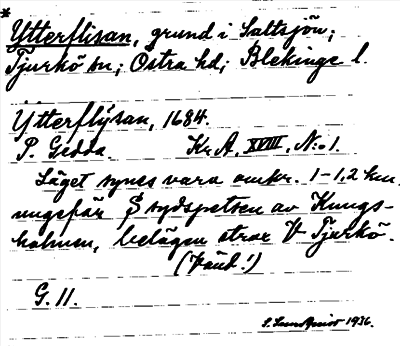 * Ytterflisan, grund i Saltsjön;
Tjurkö sn; Östra hd; Blekinge l.
Ytterflÿsan, 1684.
P. Gedda. Kr.A. XVIII, N:o 1.
Läget synes vara omkr. 1-1,2 km
ungefär S sydspetsen av Kungs-
holmen, belägen strax V Tjurkö.
(Vänd!)
G. 11.
1936.